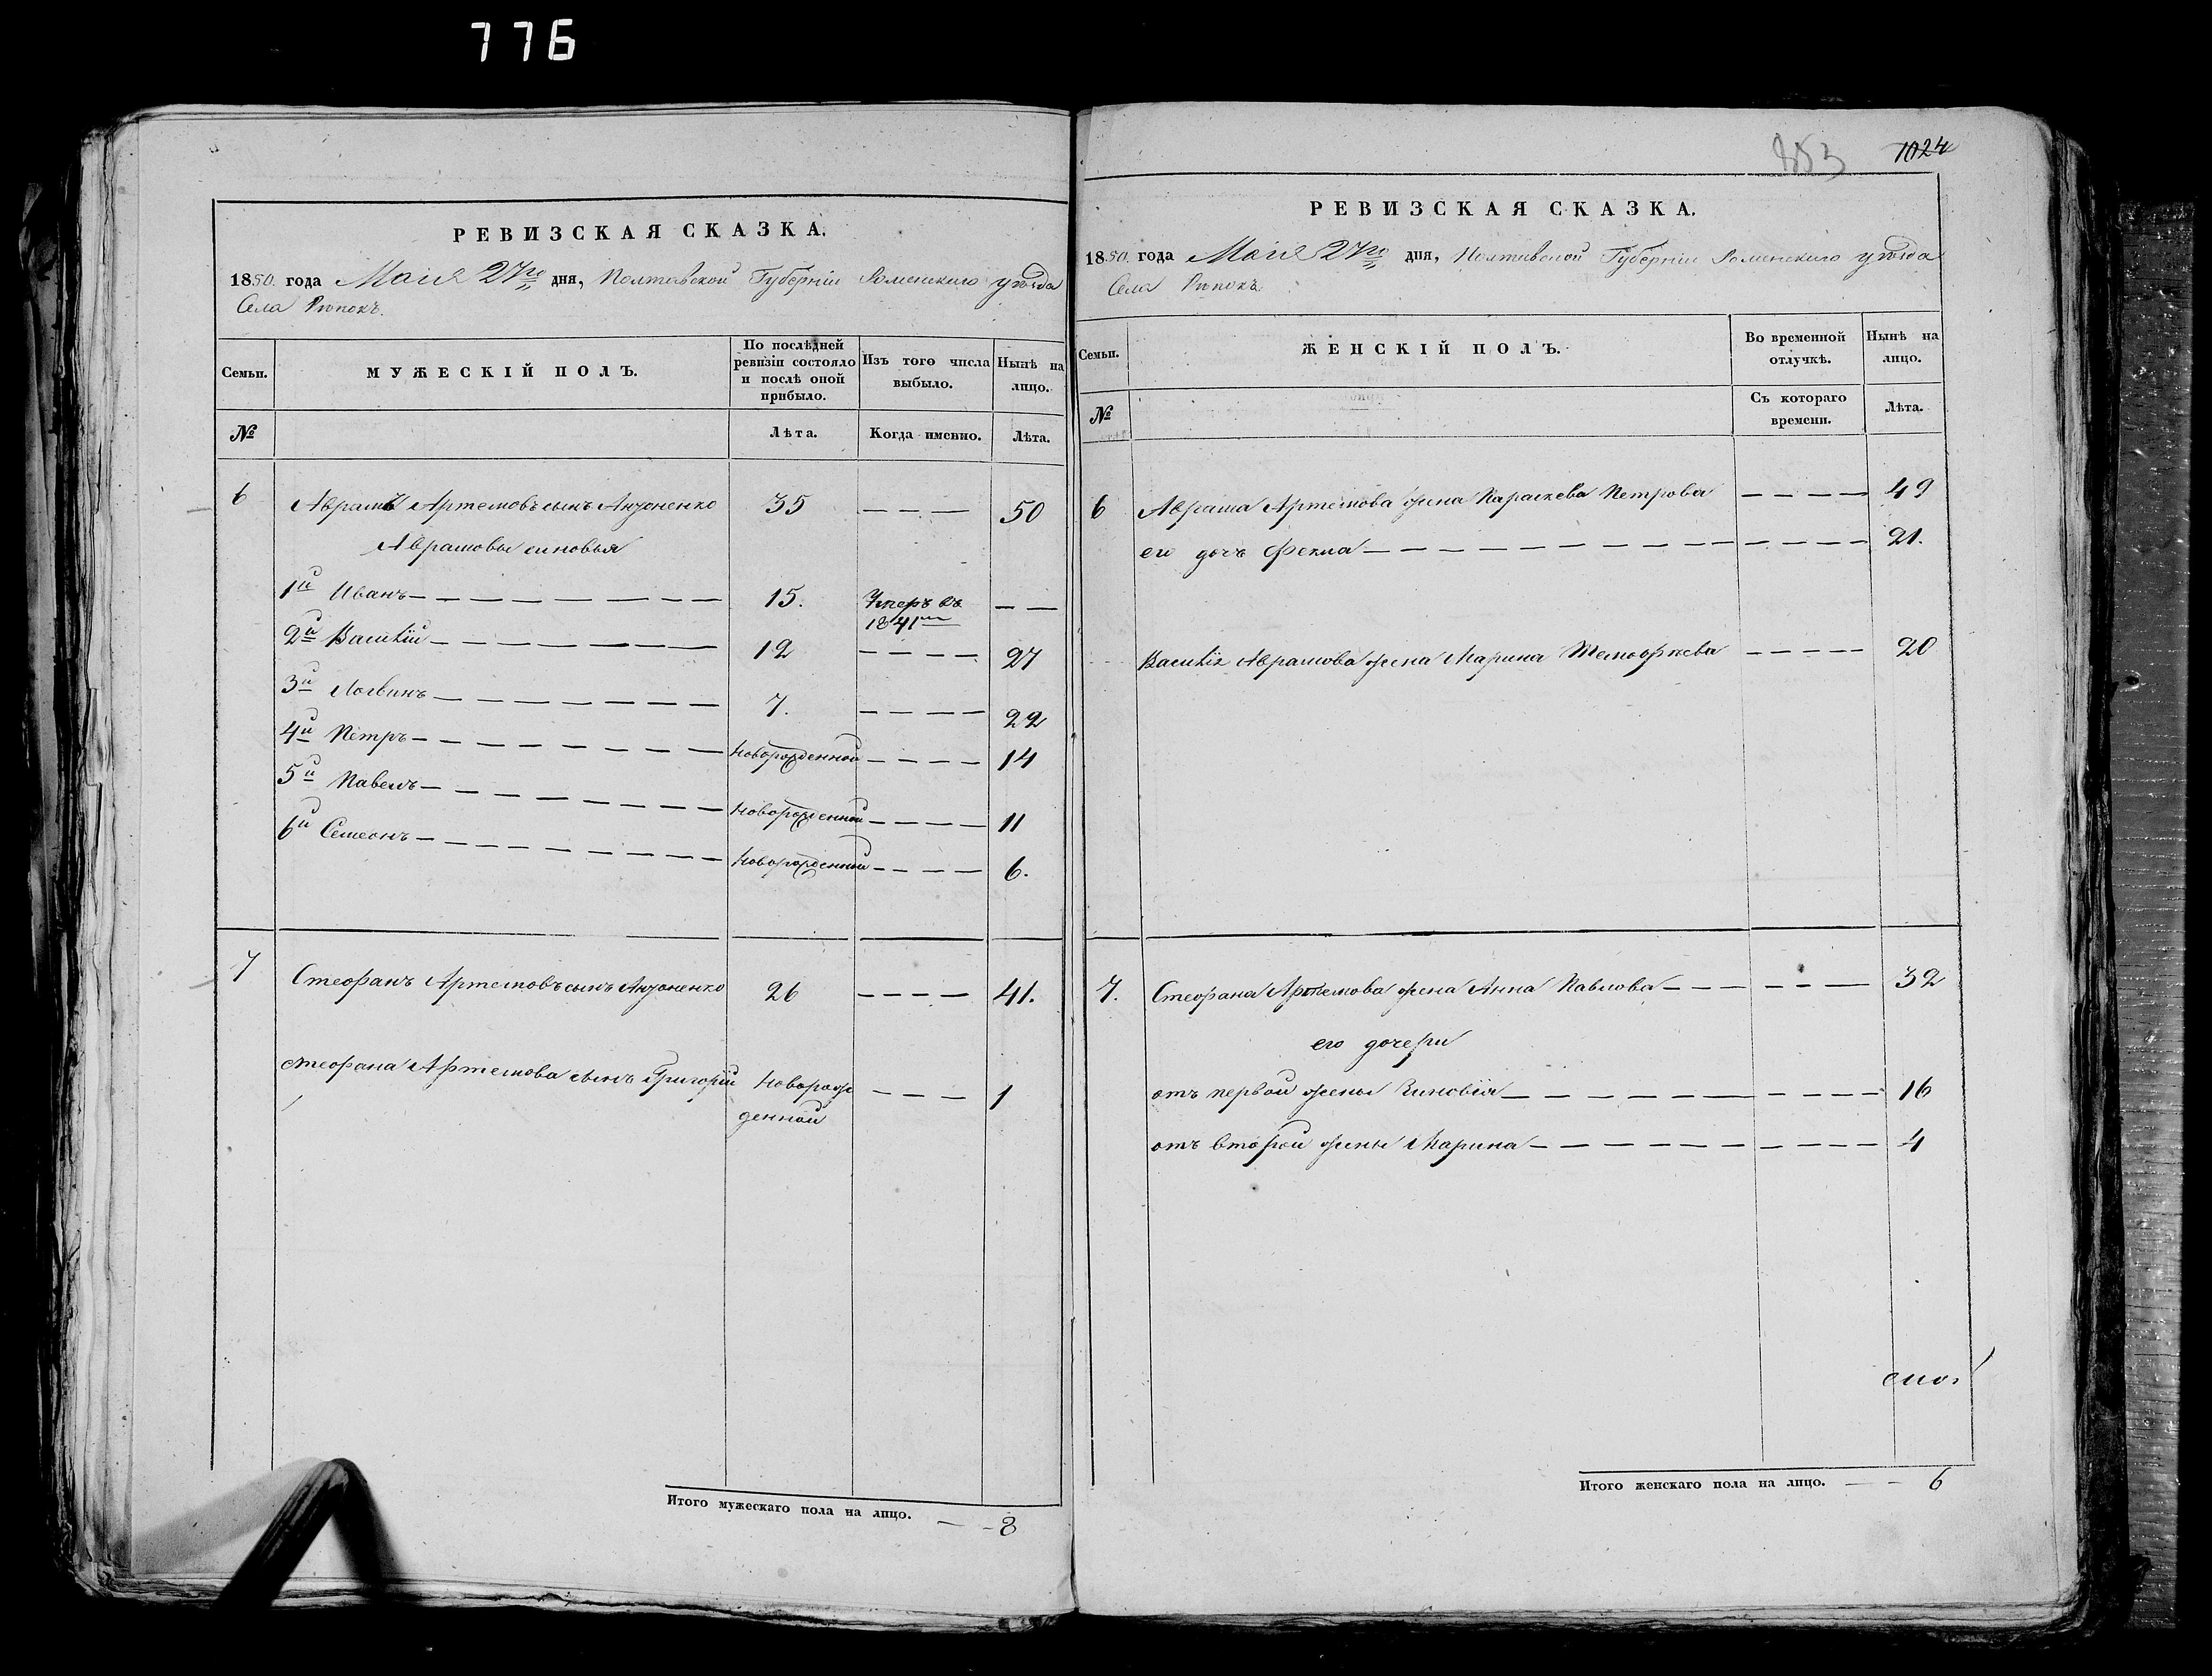 776
РЕВИЗСКАЯ СКАЗКА.
1850. года Маія 27го дня, Полтавской Губерніи Роменскаго уѣзда
Села Рипокъ.
Семьи.
МУЖЕСКІЙ ПОЛЪ.
По послѣдней ревизіи состояло и послѣ оной прибыло.
Изъ того числа выбыло.
Нынѣ на лицо.
№
Лѣта.
Когда именно.
Лѣта.
6 Аврамъ Артемовъ сынъ 35 — — — 50
Аврамовы синовья
1й Иванъ — — — 15. Умеръ въ 1841мъ — —
2й Василій — — — 12 — — — — 27
3й Логвинъ — — — 7. — — — — 22
4й Петръ — — — Новорожденной — — — — 14
5й Павелъ — — — Новорожденной — — — — 11
6й Семеонъ — — — Новорожденной — — — — 6.
7 Стефанъ Артемовъ сынъ 26 — — — — 41.
Стефана Артемова сынъ Григорій Новорож
денной — — — — 1
Итого мужескаго пола на лицо. — - 8
853 1024
РЕВИЗСКАЯ СКАЗКА.
1850. года Маія 27го дня, Полтавской Губерніи Роменскаго уѣзда
Села Рипокъ
Семьи.
ЖЕНСКІЙ ПОЛЪ.
Во временной отлучкѣ.
Нынѣ на лицо.
№
Съ котораго времени.
Лѣта.
6 Аврама Артемова жена Параскева Петрова — — — — 49
его дочь Фекла — — — — 21.
Василія Аврамова жена Марина — — — — 20
7. Стефана Артемова жена Анна Павлова — — — 32
его дочери
отъ первой жены Зиновія — — — — 16
отъ второй жены Марина — — — — 4
Итого женскаго пола на лицо. — - 6